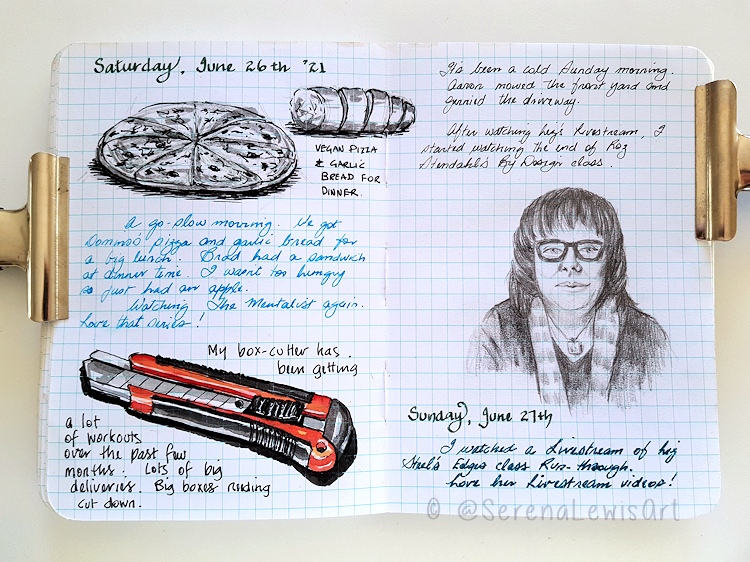 Saturday, June 26th '21
VEGAN PIZZA
& GARLIC
BREAD FOR
DINNER.
A go-slow morning. We got
Domino's pizza and garlic bread for
a big lunch. Brad had a sandwich
at dinner time. I wasn't too hungry
so just had an apple.
Watching The Mentalist again.
Love that series!
My box-cutter has
been getting
a lot
of workouts
over the past few
months. Lots of big
deliveries. Big boxes needing
cut down.
It's been a cold Sunday morning.
Aaron mowed the front yard and
gurnied the driveway.
After watching Liz's livestream, I
started watching the end of Roz
Stendahl's By Design class.
Sunday, June 27th
I watched a livestream of Liz
Steel's Edges class Run-through.
Love her livestream videos!
© @SerenaLewisArt